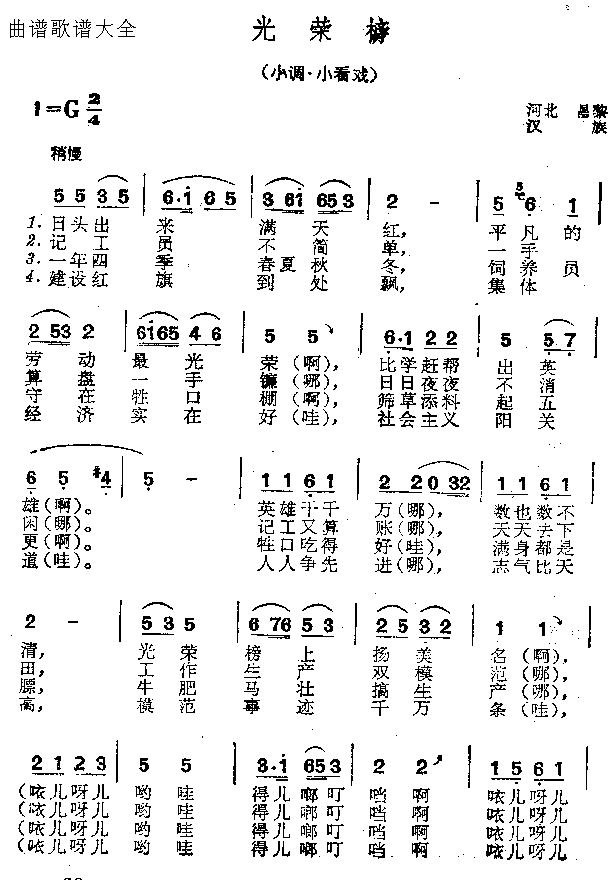 曲谱歌谱大全
光荣榜
(小调·小看戏)
1=G 2/4
河北 昌黎
汉族
稍慢
5 5 3 5 | 6·1 6 5 | 3 61 653 | 2 - | 5 5 6 1
1. 日头出 来 满 天 红, 平 凡 的
2. 记 工 员 不 简 单, 一 手
3. 一年四 季 春夏 秋 冬, 饲 养 员
4. 建设红 旗 到 处 飘, 集 体
2 53 2 | 6165 4 6 | 5 5 | 6·1 2 2 | 5 5 7
劳 动 最 光 荣(啊), 比学赶帮 出 英
算 盘 一 手 镰(哪), 日日夜夜 不 消
守 在 牲 口 棚(啊), 筛草添料 起 五
经 济 实 在 好(哇), 社会主义 阳 关
6 5 #4 | 5 - | 1 1 6 1 | 2 2 0 32 | 1 1 6 1
雄(啊)。 英雄千千 万(哪), 数也数不
闲(哪)。 记工又算 账(哪), 天天去下
更(啊)。 牲口吃得 好(哇), 满身都是
道(哇)。 人人争先 进(哪), 志气比天
2 - | 5 3 5 | 6 76 5 3 | 2 5 3 2 | 1 1
清, 光 荣 榜 上 扬 美 名(啊),
田, 工 作 生 产 双 模 范(哪),
膘, 牛 肥 马 壮 搞 生 产(哪),
高, 模 范 事 迹 千 万 条(哇),
2 1 2 3 | 5 5 | 3·1 653 | 2 2 | 1 5 6 1
(咳儿呀儿 哟 哇 得儿啷叮 当 啊 咳儿呀儿
(咳儿呀儿 哟 哇 得儿啷叮 当 啊 咳儿呀儿
(咳儿呀儿 哟 哇 得儿啷叮 当 啊 咳儿呀儿
(咳儿呀儿 哟 哇 得儿啷叮 当 啊 咳儿呀儿